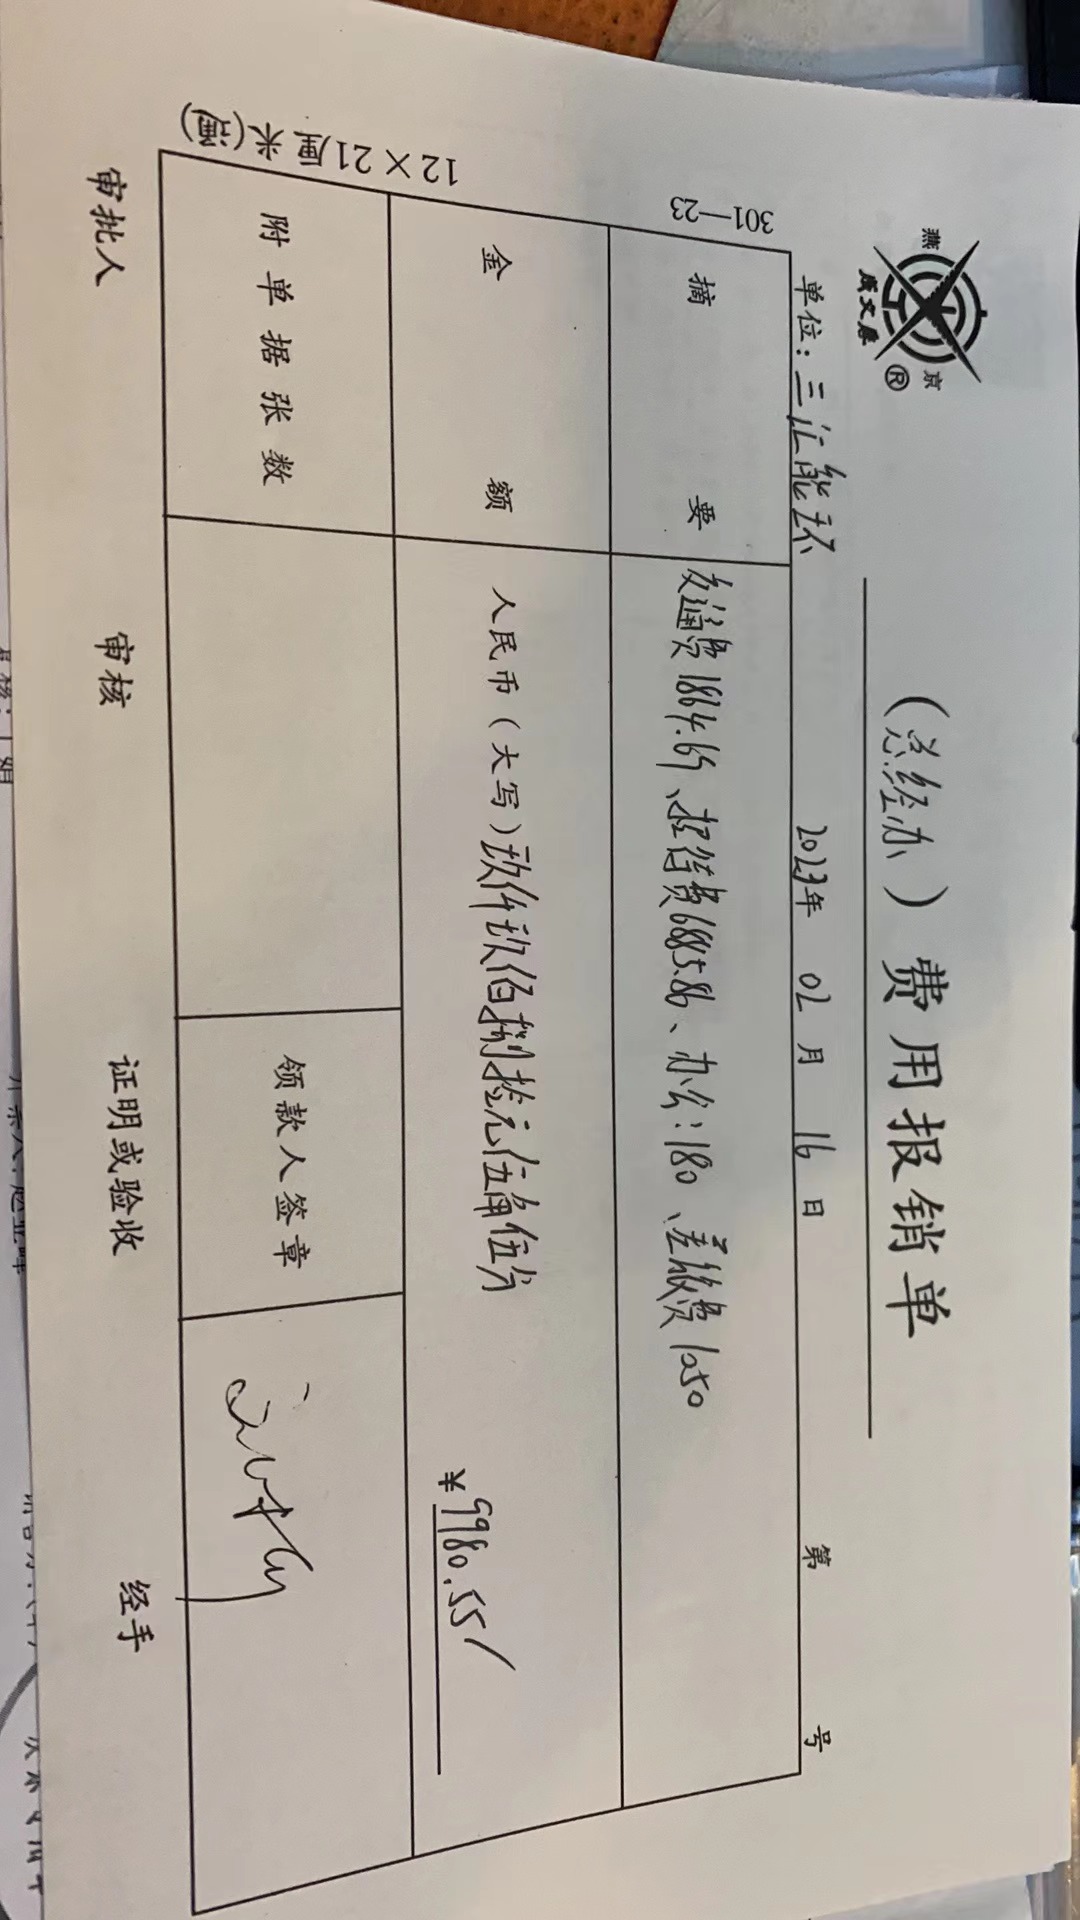 燕 京
成文厚 ®
(总经办) 费用报销单
单位: 三汇能环 2023年 02 月 16 日 第 号
301—23
摘要 交通费1864.69、招待费6685.86、办公:180、差旅费1250
金额 人民币(大写)玖仟玖佰捌拾元伍角伍分
¥9980.55/
附单据张数 领款人签章
12×21厘米(通)
审批人 审核 证明或验收 经手